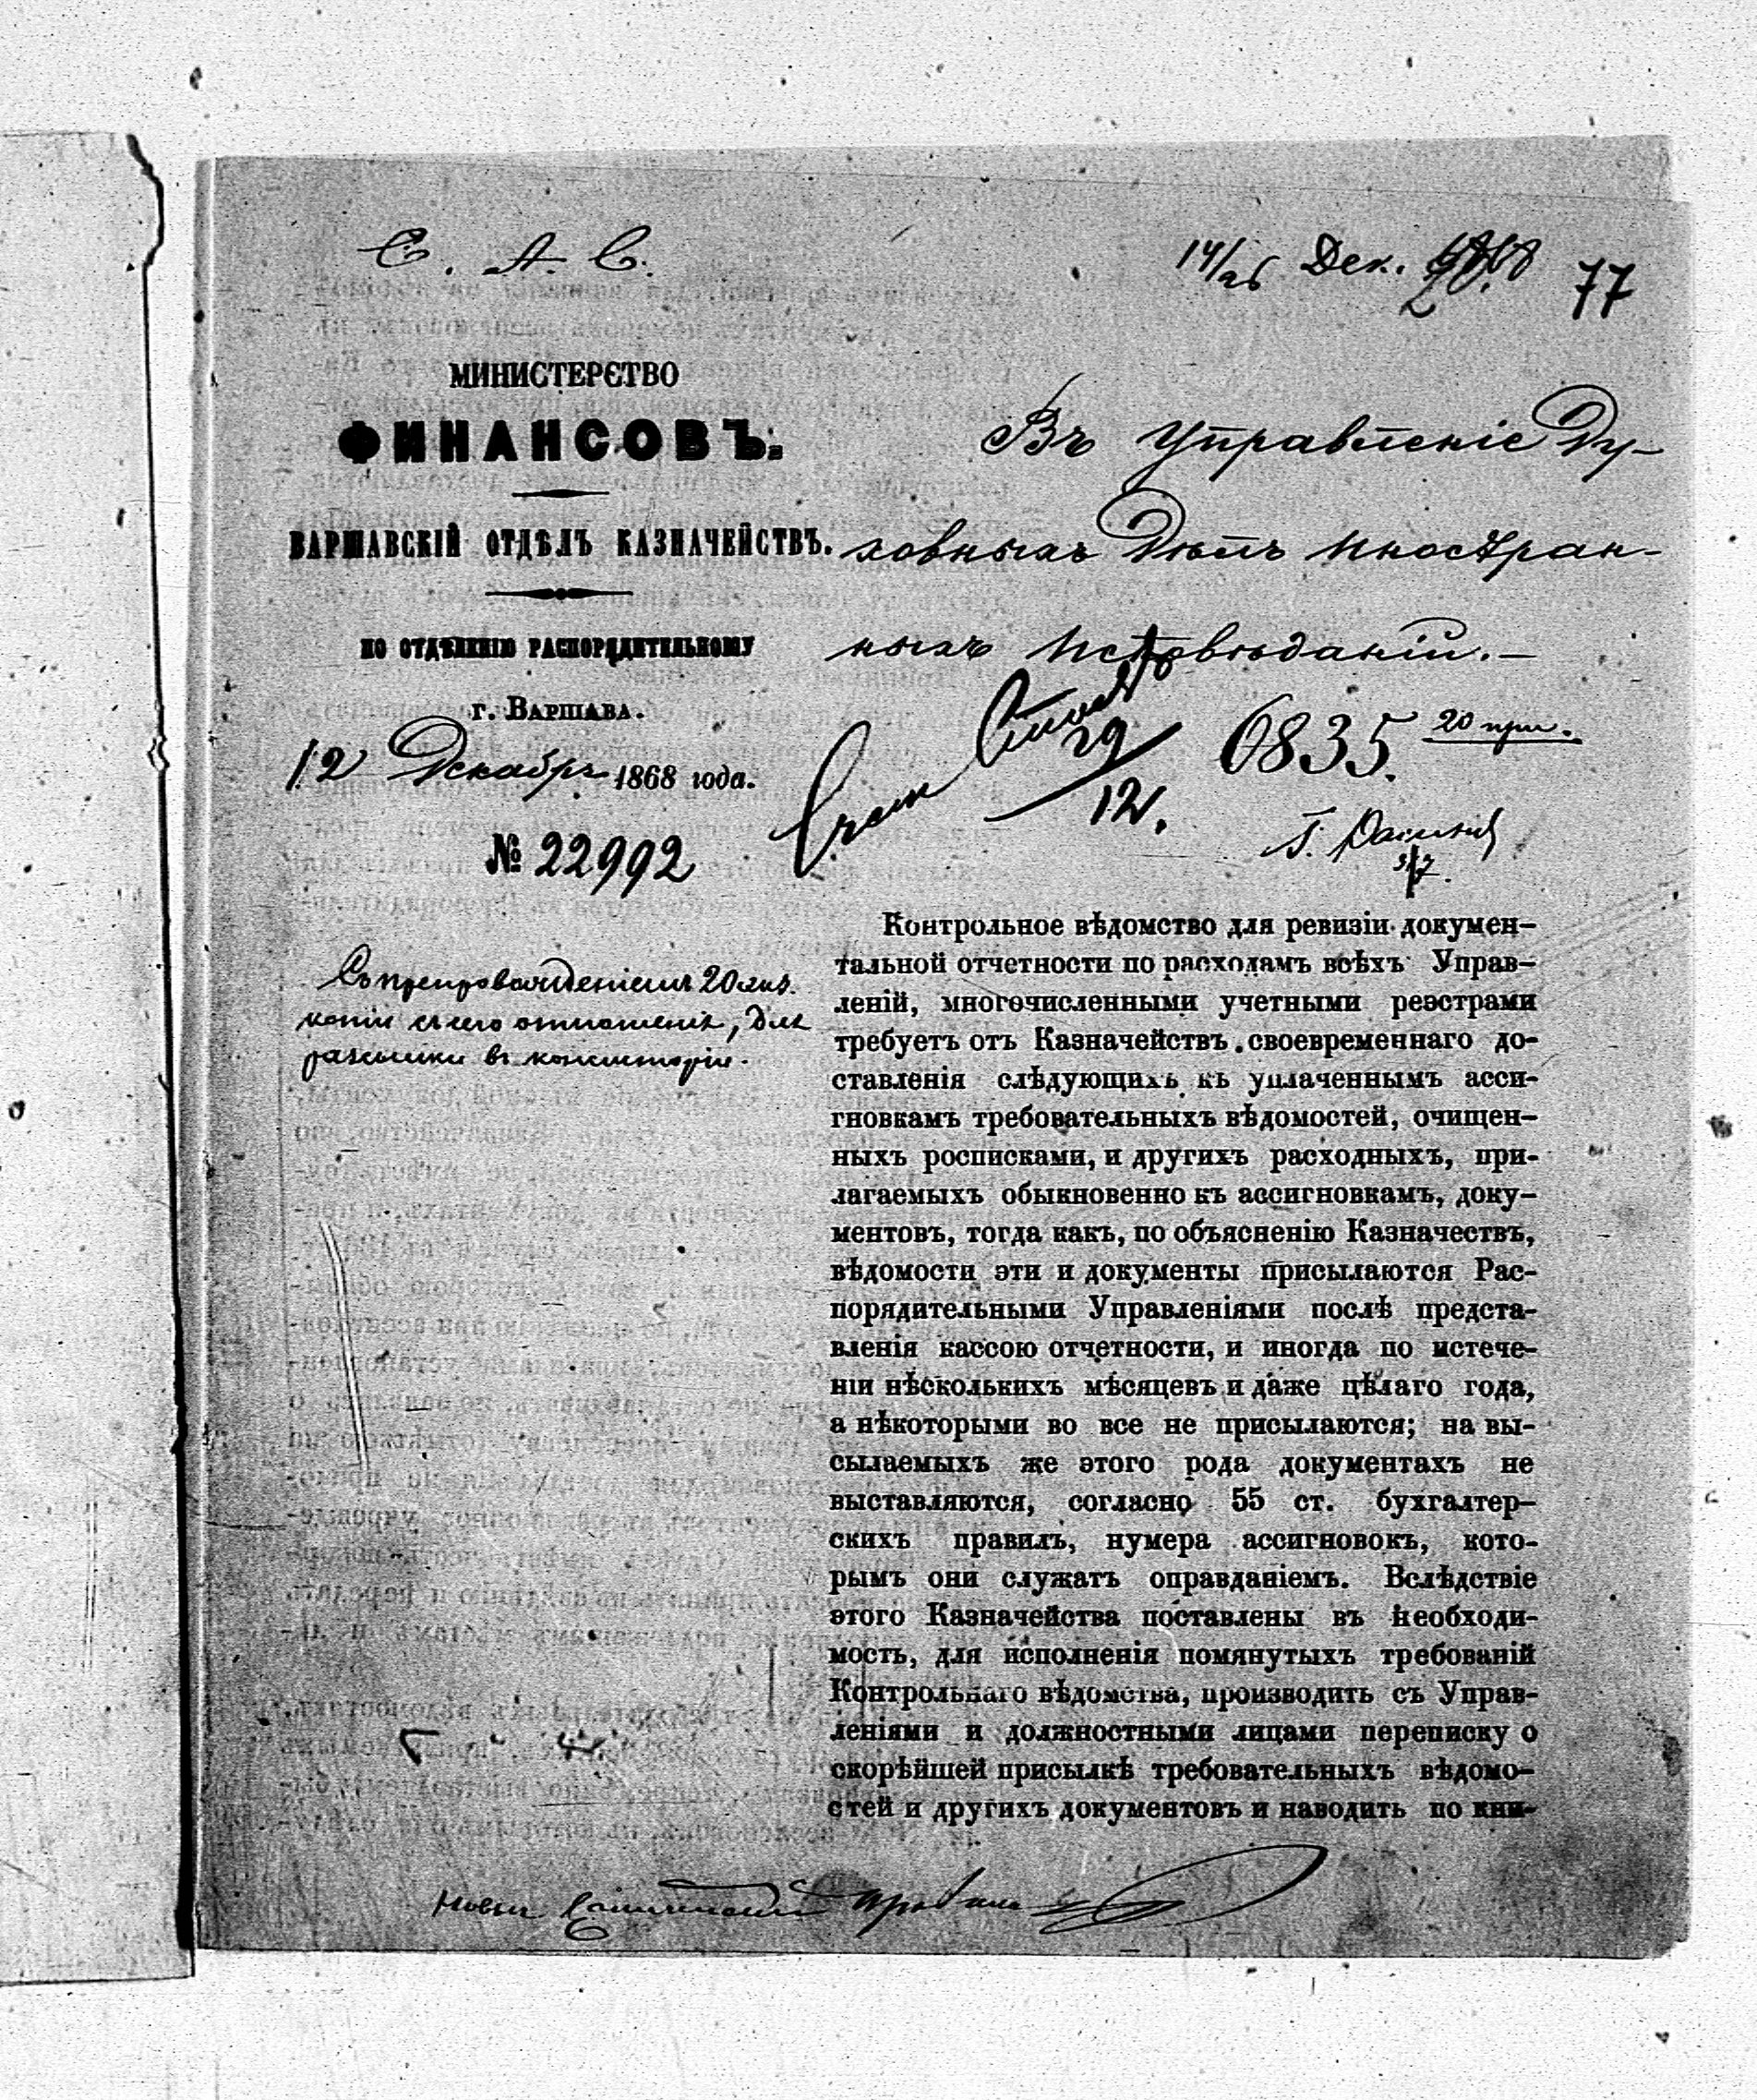 С. А. С.
14/26 Дек.
77
МИНИСТЕРСТВО
ФИНАНСОВЪ.
ВАРШАВСКІЙ ОТДѢЛЪ КАЗНАЧЕЙСТВЪ.
ПО ОТДѢЛЕНІЮ РАСПОРЯДИТЕЛЬНОМУ
г. ВАРШАВА.
12 Декабря 1868 года.
№ 22992
Въ Управленіе Ду-
ховныхъ Дѣлъ Иностран-
ныхъ Исповѣданій.—
29
12.
6835. 20 при.
Съ препровожденіемъ 20 экз.
копіи съ сего отношенія, для
разсылки въ консисторіи.
Контрольное вѣдомство для ревизіи докумен-
тальной отчетности по расходамъ всѣхъ Управ-
леній, многочисленными учетными реэстрами
требуетъ отъ Казначействъ своевременнаго до-
ставленія слѣдующихъ къ уплаченнымъ асси-
гновкамъ требовательныхъ вѣдомостей, очищен-
ныхъ росписками, и другихъ расходныхъ, при-
лагаемыхъ обыкновенно къ ассигновкамъ, доку-
ментовъ, тогда какъ, по объясненію Казначествъ,
вѣдомости эти и документы присылаются Рас-
порядительными Управленіями послѣ предста-
вленія кассою отчетности, и иногда по истече-
ніи нѣсколькихъ мѣсяцевъ и даже цѣлаго года,
а нѣкоторыми во все не присылаются; на вы-
сылаемыхъ же этого рода документахъ не
выставляются, согласно 55 ст. бухгалтер-
скихъ правилъ, нумера ассигновокъ, кото-
рымъ они служатъ оправданіемъ. Вслѣдствіе
этого Казначейства поставлены въ необходи-
мость, для исполненія помянутыхъ требованій
Контрольнаго вѣдомства, производить съ Управ-
леніями и должностными лицами переписку о
скорѣйшей присылкѣ требовательныхъ вѣдомо-
стей и другихъ документовъ и наводить по кни-